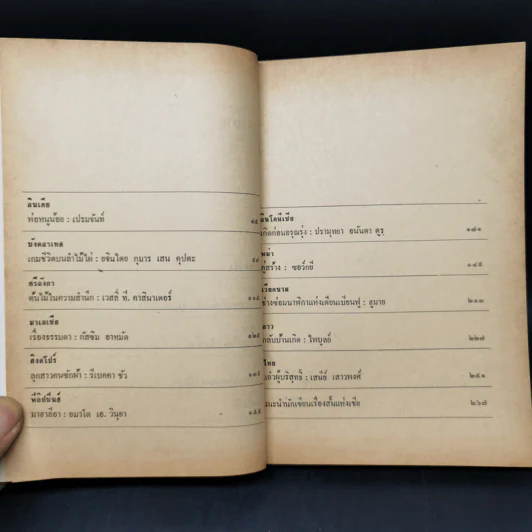 อินเดีย
พ่อหนูน้อย : เปรมจันท์
บังคลาเทศ
เกมชีวิตบนลำไม้ไผ่ : อจินไตย กุมาร เสน คุปตะ
ศรีลังกา
ต้นไม้ในความสำนึก : เวสลี่ ที. คาสินาเดอร์
๑๑๕
มาเลเซีย
เรื่องธรรมดา : กัสซิม อาหมัด
๑๒๕
สิงคโปร์
ลูกสาวคนซักผ้า : รีเบคคา ชัว
๑๓๕
ฟิลิปปินส์
มาฮาถียา : อมาโด เอ. วินูยา
๑๕๕
อินโดนีเซีย
เกิดก่อนอรุณรุ่ง : ปรามุทยา อนันตา ตูร
๑๗๑
พม่า
คู่สร้าง : ซอว์กยี
๑๘๕
เวียดนาม
ช่างซ่อมนาฬิกาแห่งเดียนเบียนฟู : ฮูมาย
๒๑๓
ลาว
กลับบ้านเกิด : ไพบูลย์
๒๒๗
ไทย
ผู้บริสุทธิ์ : เสนีย์ เสาวพงศ์
๒๕๑
แนะนำนักเขียนเรื่องสั้นแห่งเอเชีย
๒๖๗